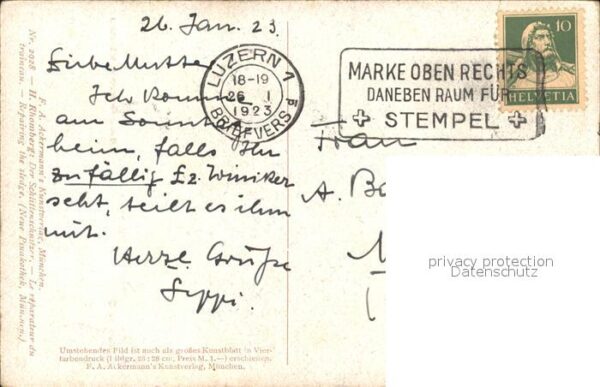 26. Jan. 23.
Liebe Mutter
Ich komme
am Sonntag
heim, falls Ihr
zufällig Fz. Winiker
seht, teilt es ihm
mit.
Herzl. Grüße
Seppi.
LUZERN 1
18-19
26. I
1923
BRIEFVERS.
MARKE OBEN RECHTS
DANEBEN RAUM FÜR
STEMPEL
10
HELVETIA
Frau
A.
privacy protection
Datenschutz
F. A. Ackermann's Kunstverlag, München.
Nr. 2028 — H. Rhomberg: Der Schlittenschnitzer. — Le réparateur du
traineau. — Repairing the sledge. (Neue Pinakothek, München.)
Umstehendes Bild ist auch als großes Kunstblatt in Vier-
farbendruck (Bildgr. 23:28 cm, Preis M. 1.—) erschienen.
F. A. Ackermann's Kunstverlag, München.